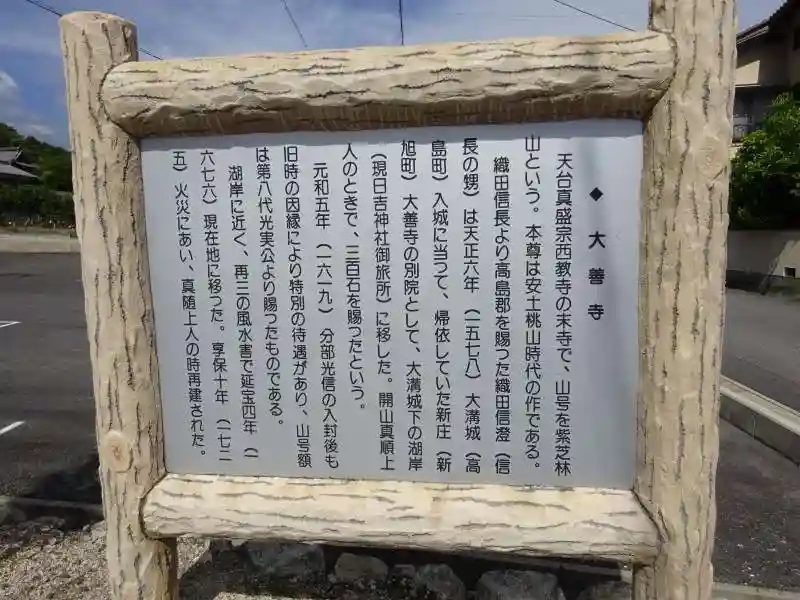 ◆ 大善寺
天台真盛宗西教寺の末寺で、山号を紫芝林
山という。本尊は安土桃山時代の作である。
織田信長より高島郡を賜った織田信澄（信
長の甥）は天正六年（一五七八）大溝城（高
島町）入城に当つて、帰依していた新庄（新
旭町）大善寺の別院として、大溝城下の湖岸
（現日吉神社御旅所）に移した。開山真順上
人のときで、三百石を賜ったという。
元和五年（一六一九）分部光信の入封後も
旧時の因縁により特別の待遇があり、山号額
は第八代光実公より賜ったものである。
湖岸に近く、再三の風水害で延宝四年（一
六七六）現在地に移った。享保十年（一七二
五）火災にあい、真随上人の時再建された。